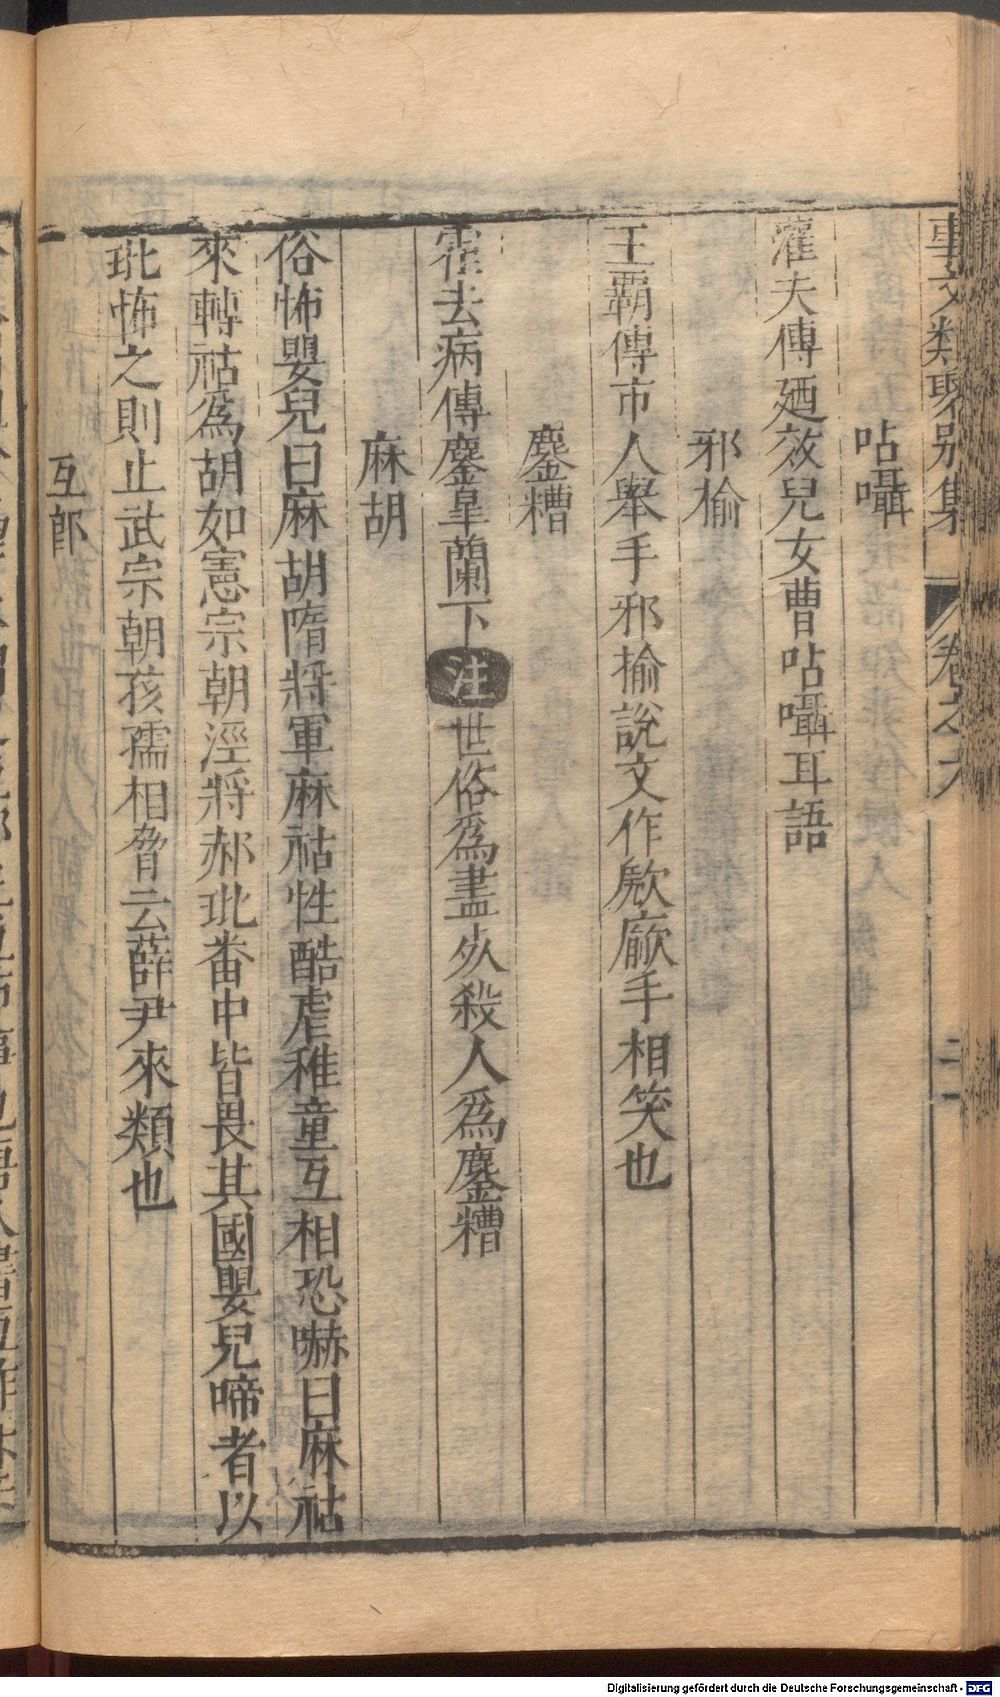 事文類聚別集 卷之六 二十
呫囁
灌夫傳廼效兒女曹呫囁耳語
邪揄
王霸傳市人舉手邪揄說文作歋廠手相笑也
鏖糟
霍去病傳鏖皐蘭下注世俗爲盡死殺人爲鏖糟
麻胡
俗怖嬰兒曰麻胡隋將軍麻祜性酷虐稚童互相恐嚇曰麻祜
來轉祜爲胡如憲宗朝涇將郝玭番中皆畏其國嬰兒啼者以
玭怖之則止武宗朝孩孺相脅云薛尹來類也
互郎
Digitalisierung gefördert durch die Deutsche Forschungsgemeinschaft - DFG